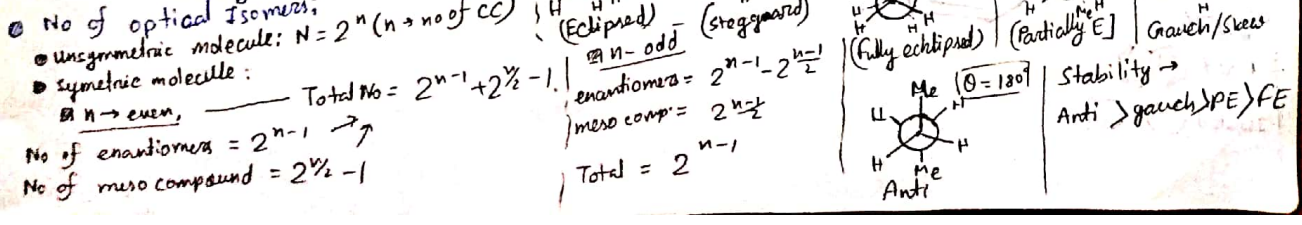 No of optical Isomers,
Unsymmetric molecule: N = 2^n (n → no of CC)
Symetric molecille :
n → even, Total No = 2^n-1 + 2^n/2 - 1.
No of enantiomers = 2^n-1
No of meso compound = 2^n/2 - 1
H
(Eclipsed) - (steggeard)
n- odd
enantiomers = 2^n-1 - 2^n-1/2
meso comp = 2^n-1/2
Total = 2^n-1
H H
(fully echlipsed) (Partially E] Gauch/Skew
Me θ = 180°
H H
H H
Me
Anti
Stability →
Anti > gauch > PE > FE